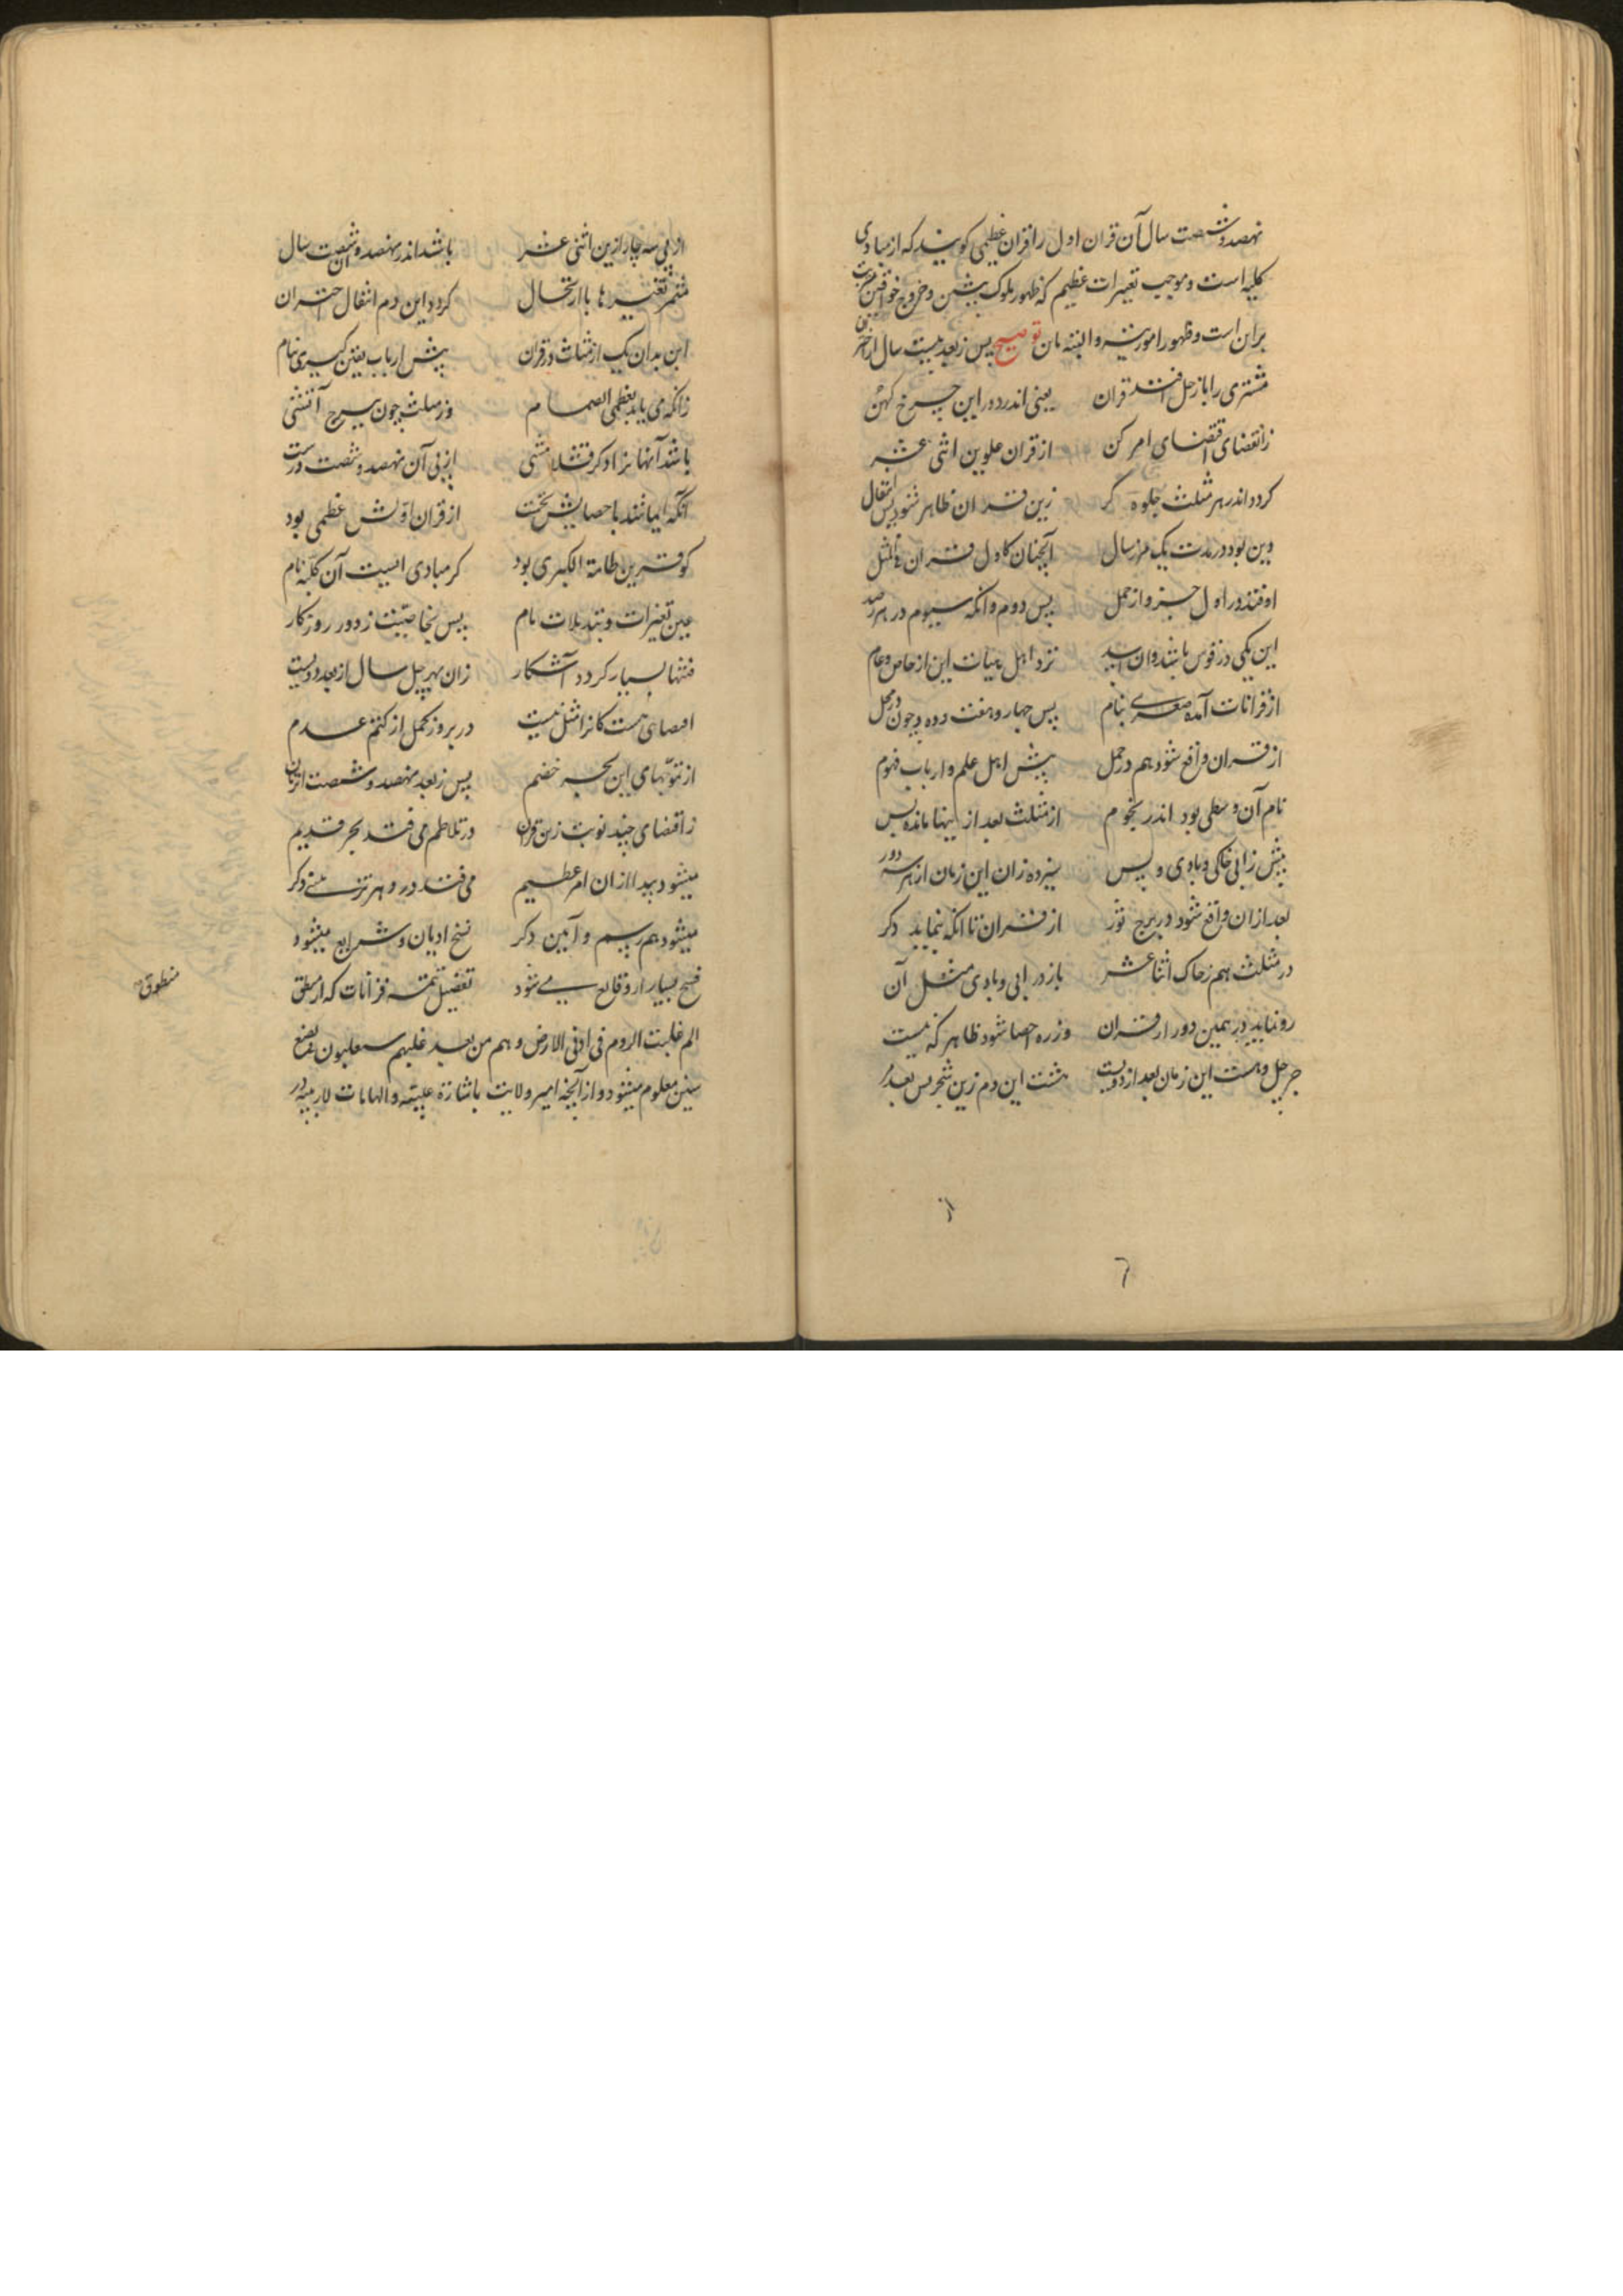 نهصد و شصت سال آن قران اول را قران عظمی کویند که از مبادی
کلیه است و موجب تغییرات عظیم که ظهور ملوک پیشین و خروج خواقین مترتب
بران است و ظهور امور شنیه و البته مان توضیح پس ز بعد بیست سال از اختر
مشتری را با زحل افتد قران یعنی اندر دور این چرخ کهن
ز انقضای اقتضای امر کن از قران علوین اثنی عشر
کردد اندر هر مثلث جلوه کر زین قران ظاهر شود پس انتقال
وین بود در مدت یک مر ز سال آنچنان کاول قران
اوفتد در اول جزو از حمل پس دوم وانکه سیوم در هر
این یکی در قوس باشد وان اسد نزد اهل هیات این از خاص و عام
از قرانات آمده صغری بنام پس چهار و هفت و ده و چون در محل
از قران واقع شود هم در حمل پیش اهل علم و ارباب فهوم
نام آن وسطی بود اندر نجوم از مثلث بعد از اینها مانده پس
پیش ز ابی خاکی و بادی و پس سیزده زان این زمان از هر سه دور
بعد ازان واقع شود در برج ثور از قران تا انکه بنماید دکر
در مثلث هم ز خاک اثنا عشر باز در ابی و بادی مثل آن
رو نماید در همین دور از قران وز ره احصا شود ظاهر که نیست
جز چل و هست این زمان بعد از دویست هشت این دم زین شجر پس بعد
از
از پی سه چار ازین اثنی عشر باشد اندر نهصد و شصت آن سال
مثمر تغییرها با ارتحال کردد این دم انتقال اختران
این بدان یک از مثلث در قران پیش ارباب یقین کبری بنام
زانکه می یابد بعظمی انضمام وز مثلث چون ببرج آتشی
باشد آنها نزاد کر از پی آن نهصد و شصت درست
آنکه باحصایش نخست از قران اولش عظمی بود
کو قرین طامة الکبری بود کر مبادی ایست آن کلیه نام
عین تغییرات و تبدیلات تام پس بخاصیت ز دور روزکار
فتنها بسیار کردد آشکار زان بهر چل سال از بعد دویست
اقتضای هست کانرا مثل نیست در بروز کمل از کتم عدم
از تنوّجهای این بحر خضم پس ز بعد نهصد و شصت از زمان
ز اقتضای چند نوبت زین قران در تلاطم می فتد بحر قدیم
میشود پیدا ازان امر عظیم می فتد در دهر دکر
میشود هم رسم و آیین دکر نسخ ادیان و شرایع میشود
فسخ بسیار از وقایع می شود تفصیل تتمه قرانات که از منطق
منطوق
الم غلبت الروم فی ادنی الارض و هم من بعد غلبهم سیغلبون فی بضع
سنین معلوم میشود و از آنچه امیر ولایت باشارة غیبیه و الهامات لاریبیه در